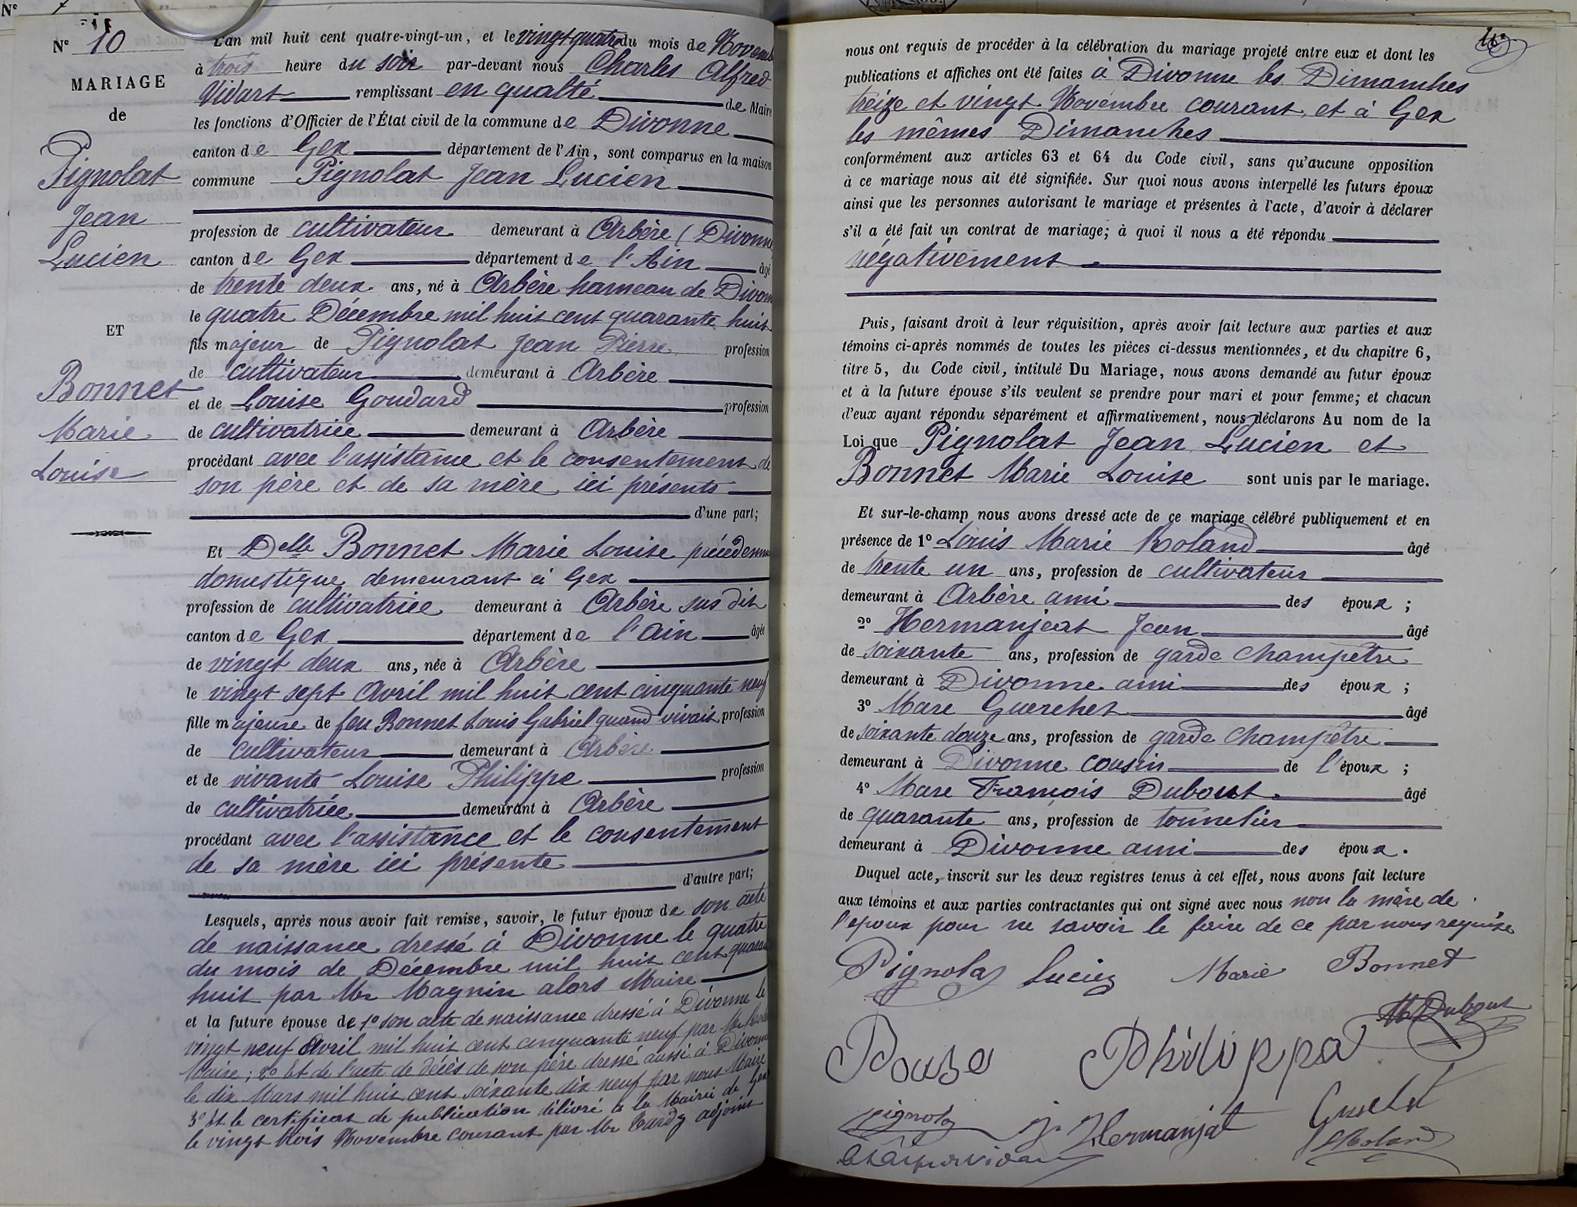 Nº
Nº 10
MARIAGE
de
Pignolat
Jean
Lucien
ET
Bonnet
Marie
Louise
L'an mil huit cent quatre-vingt-un, et le vingt quatre du mois de Novemb
à trois heure du soir par-devant nous Charles Alfred
Vidart remplissant en qualté de Maire
les fonctions d'Officier de l'État civil de la commune de Divonne
canton de Gex département de l'Ain, sont comparus en la maison
commune Pignolat Jean Lucien
profession de cultivateur demeurant à Arbère (Divonne
canton de Gex département de l'Ain âgé
de trente deux ans, né à Arbère hameau de Divonn
le quatre Décembre mil huit cent quarante huit
fils majeur de Pignolat Jean Pierre profession
de cultivateur demeurant à Arbère
et de Louise Goudard profession
de cultivatrice demeurant à Arbère
procédant avec l'assistance et le consentement de
son père et de sa mère ici présents
d'une part;
Et Delle Bonnet Marie Louise précédemm
domestique demeurant à Gex
profession de cultivatrice demeurant à Arbère sus dit
canton de Gex département de l'Ain âgée
de vingt deux ans, née à Arbère
le vingt sept Avril mil huit cent cinquante neuf
fille majeure de feu Bonnet Louis Gabriel quand vivait profession
de cultivateur demeurant à Arbère
et de vivante Louise Philippe profession
de cultivatrice demeurant à Arbère
procédant avec l'assistance et le consentement
de sa mère ici présente
d'autre part;
Lesquels, après nous avoir fait remise, savoir, le futur époux de son acte
de naissance dressé à Divonne le quatre
du mois de Décembre mil huit cent quara
huit par Mr Magnin alors Maire
et la future épouse de 1º son acte de naissance dressé à Divonne le
vingt neuf Avril mil huit cent cinquante neuf par Mr
Maire; 2º Et de l'acte de décès de son père dressé aussi à Divonne
le dix Mars mil huit cent soixante dix neuf par nous Maire
3º Et le certificat de publication délivré à la Mairie de Gex
le vingt trois Novembre courant par Mr adjoint
nous ont requis de procéder à la célébration du mariage projeté entre eux et dont les
publications et affiches ont été faites à Divonne les Dimanches
treize et vingt Novembre courant, et à Gex
les mêmes Dimanches
conformément aux articles 63 et 64 du Code civil, sans qu'aucune opposition
à ce mariage nous ait été signifiée. Sur quoi nous avons interpellé les futurs époux
ainsi que les personnes autorisant le mariage et présentes à l'acte, d'avoir à déclarer
s'il a été fait un contrat de mariage; à quoi il nous a été répondu
négativement.
Puis, faisant droit à leur réquisition, après avoir fait lecture aux parties et aux
témoins ci-après nommés de toutes les pièces ci-dessus mentionnées, et du chapitre 6,
titre 5, du Code civil, intitulé Du Mariage, nous avons demandé au futur époux
et à la future épouse s'ils veulent se prendre pour mari et pour femme; et chacun
d'eux ayant répondu séparément et affirmativement, nous déclarons Au nom de la
Loi que Pignolat Jean Lucien et
Bonnet Marie Louise sont unis par le mariage.
Et sur-le-champ nous avons dressé acte de ce mariage célébré publiquement et en
présence de 1º Louis Marie Roland âgé
de trente un ans, profession de cultivateur
demeurant à Arbère ami des époux;
2º Hermanjeat Jean âgé
de soixante ans, profession de garde champêtre
demeurant à Divonne ami des époux;
3º Marc Guerchet âgé
de soixante douze ans, profession de garde champêtre
demeurant à Divonne cousin de l'époux;
4º Marc François Dubout. âgé
de quarante ans, profession de tonnelier
demeurant à Divonne ami des époux.
Duquel acte, inscrit sur les deux registres tenus à cet effet, nous avons fait lecture
aux témoins et aux parties contractantes qui ont signé avec nous non la mère de
l'époux pour ne savoir le faire de ce par nous requise
Pignolat Lucien Marie Bonnet
M Dubout
Philippa
Pignolat J. Hermanjat Guechet
Roland